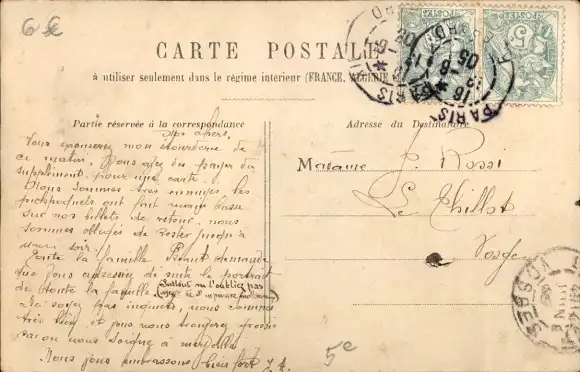 6 €
CARTE POSTALE
à utiliser seulement dans le régime intérieur (FRANCE, ALGERIE
Partie réservée à la correspondance
Adresse du Destinataire
Mes chers,
Vous excuserez mon étourderie de
ce matin. Vous avez du payer du
supplément pour une carte.
Nous sommes très ennuyés, les
pickpockets ont fait main basse
sur nos billets de retour, nous
sommes obligés de rester jusqu'à
soir.
Toute la famille demande
que vous de suite le portrait
de toute la famille. (Surtout ne l'oubliez pas
Ne soyez pas inquiets, nous sommes
très bien et vous nous trouverez grossis
car on nous soigne à merveille
Nous vous embrassons bien fort
Madame J. Rossi
Le Thillot
Vosges
5e
PARIS
VOSGES